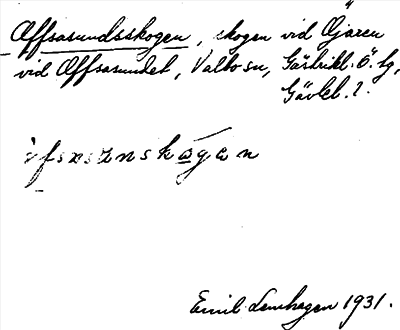 Öffsasundsskogen, skogen vid Öjaren
vid Öffsasundet, Valbo sn, Gästrikl. ö. tg,
Gävleb. l.
Emil Lenhagen 1931.